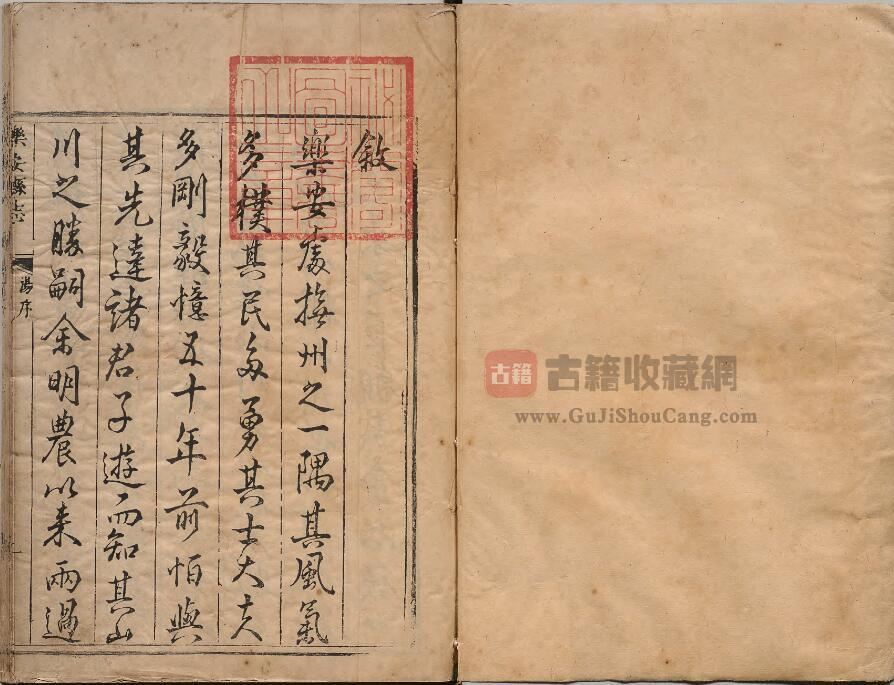 敘
樂安處撫州之一隅其風氣
多樸其民多勇其士大夫
多剛毅憶五十年前怕與
其先達諸君子遊而知其山
川之勝嗣余明農以来兩過
樂安縣志
湯序
古籍
古籍收藏網
www.GuJiShouCang.com